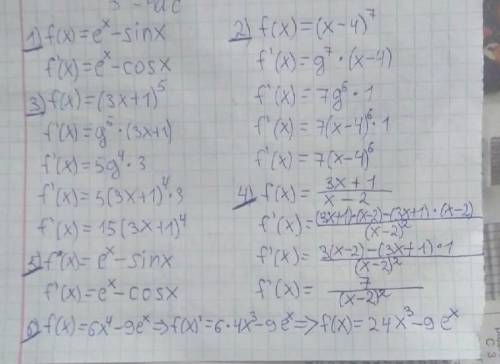 1) f(x)=e^x-sinx
f'(x)=e^x-cosx
2) f(x)=(x-4)^7
f'(x)=g^7·(x-4)
f'(x)=7g^6·1
f'(x)=7(x-4)^6·1
f'(x)=7(x-4)^6
3) f(x)=(3x+1)^5
f'(x)=g^5·(3x+1)
f'(x)=5g^4·3
f'(x)=5(3x+1)^4·3
f'(x)=15(3x+1)^4
4) f(x)=\frac{3x+1}{x-2}
f'(x)=\frac{(3x+1)·(x-2)-(3x+1)·(x-2)}{(x-2)^2}
f'(x)=\frac{3(x-2)-(3x+1)·1}{(x-2)^2}
f'(x)=\frac{7}{(x-2)^2}
5) f(x)=e^x-sinx
f'(x)=e^x-cosx
6) f(x)=6x^4-9e^x=>f(x)'=6·4x^3-9e^x=>f(x)=24x^3-9e^x